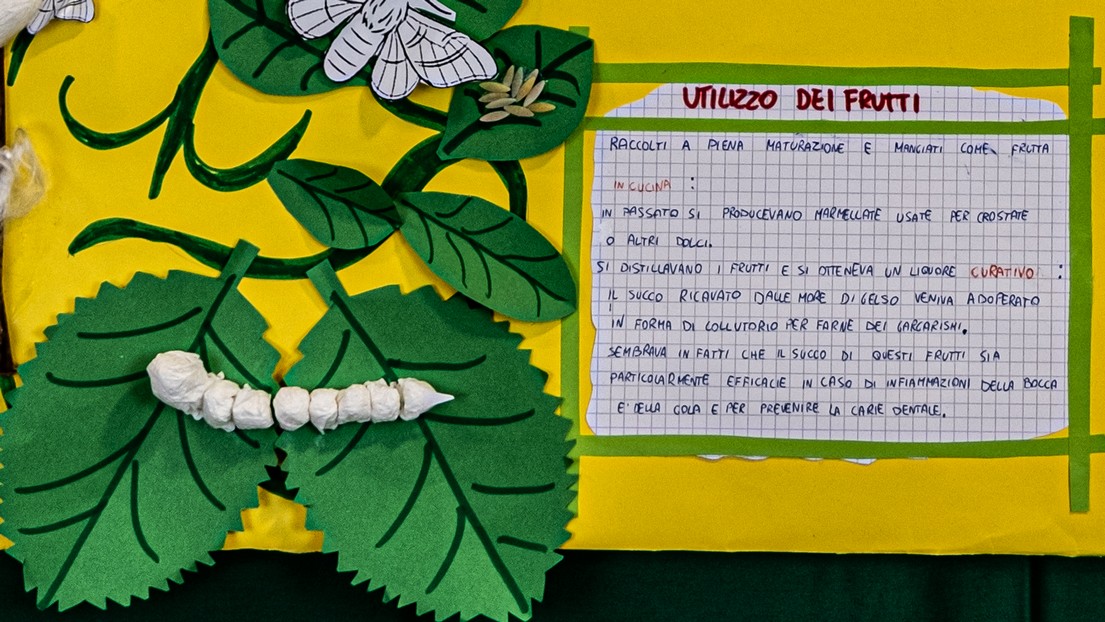 UTILIZZO DEI FRUTTI
RACCOLTI A PIENA MATURAZIONE E MANGIATI COME FRUTTA
IN CUCINA :
IN PASSATO SI PRODUCEVANO MARMELLATE USATE PER CROSTATE
O ALTRI DOLCI.
SI DISTILLAVANO I FRUTTI E SI OTTENEVA UN LIQUORE CURATIVO :
IL SUCCO RICAVATO DALLE MORE DI GELSO VENIVA ADOPERATO
IN FORMA DI COLLUTORIO PER FARNE DEI GARGARISMI.
SEMBRAVA IN FATTI CHE IL SUCCO DI QUESTI FRUTTI SIA
PARTICOLARMENTE EFFICACIE IN CASO DI INFIAMMAZIONI DELLA BOCCA
E' DELLA GOLA E PER PREVENIRE LA CARIE DENTALE.